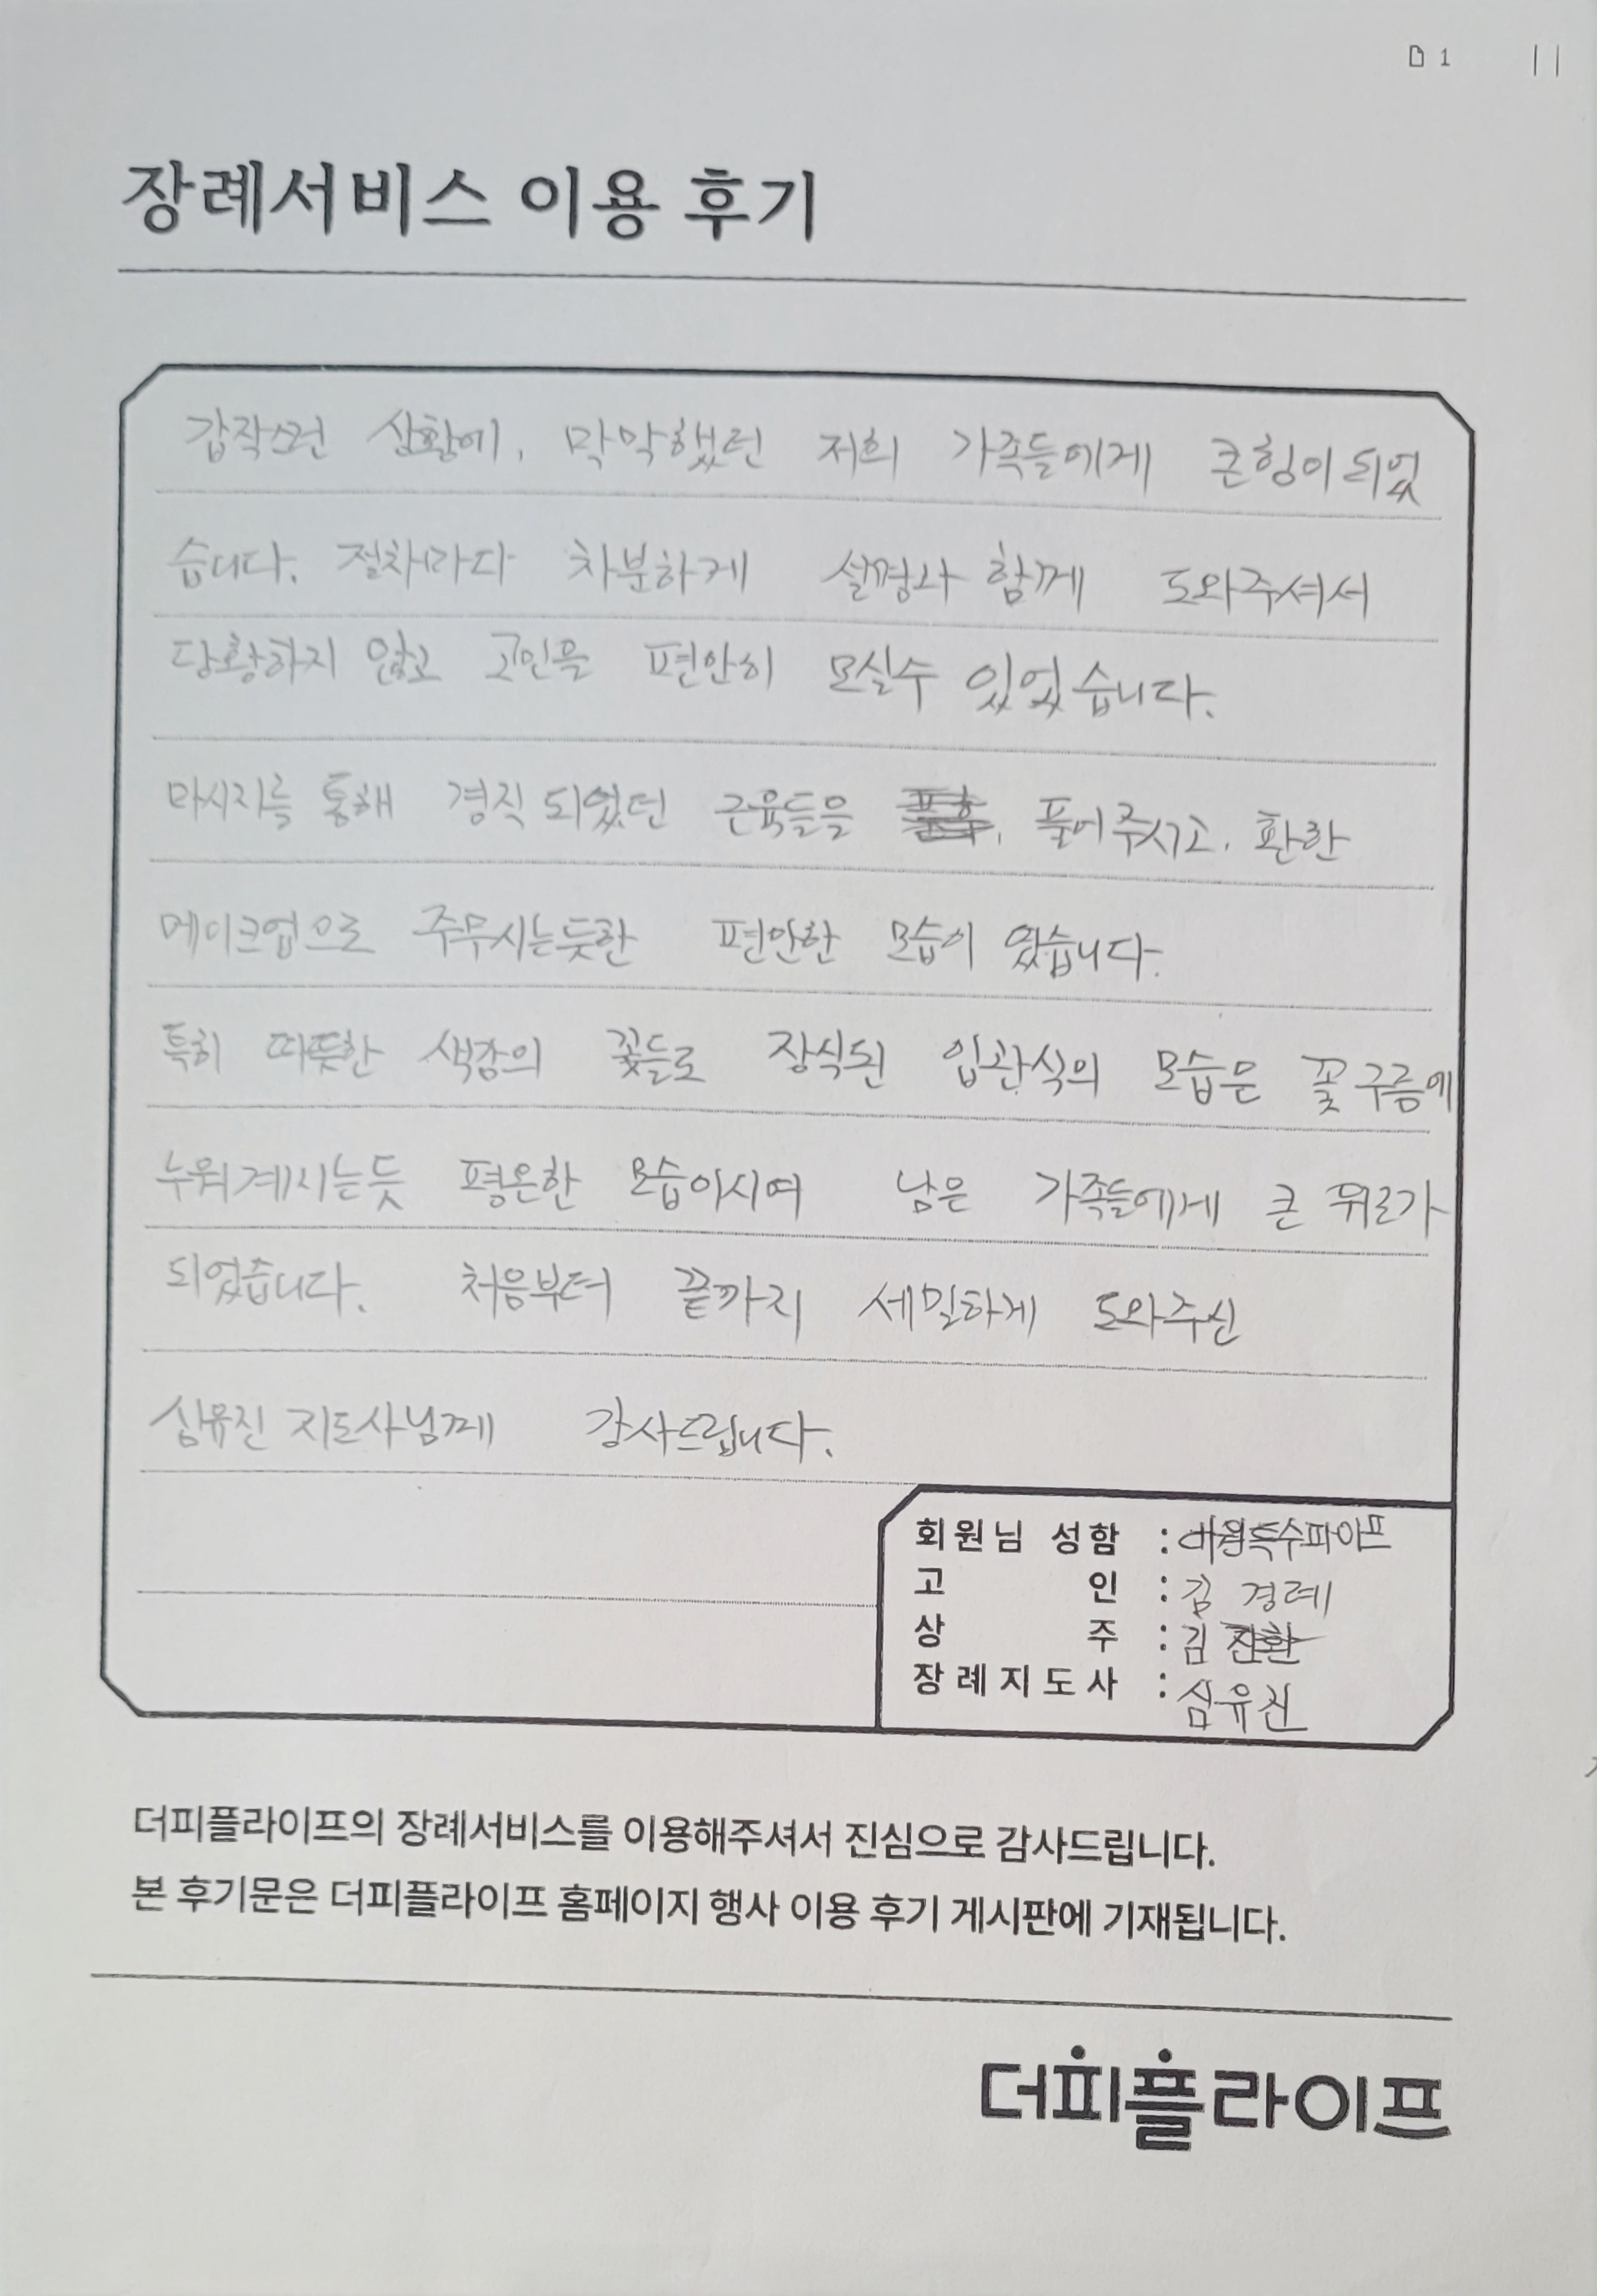 1
장례서비스 이용 후기
갑작스런 상황에, 막막했던 저희 가족들에게 큰힘이 되었
습니다. 절차마다 차분하게 설명과 함께 도와주셔서
당황하지 않고 고인을 편안히 모실수 있었습니다.
마사지를 통해 경직 되었던 근육들을 풀어주시고, 환한
메이크업으로 주무시는듯한 편안한 모습이 였습니다.
특히 따뜻한 색감의 꽃들로 장식된 입관식의 모습은 꽃구름에
누워계시는듯 평온한 모습이시여 남은 가족들에게 큰 위로가
되었습니다. 처음부터 끝까지 세밀하게 도와주신
심유진 지도사님께 감사드립니다.
회원님 성함 :
고 인 : 김 경례
상 주 : 김
장례지도사 : 심유진
더피플라이프의 장례서비스를 이용해주셔서 진심으로 감사드립니다.
본 후기문은 더피플라이프 홈페이지 행사 이용 후기 게시판에 기재됩니다.
더피플라이프